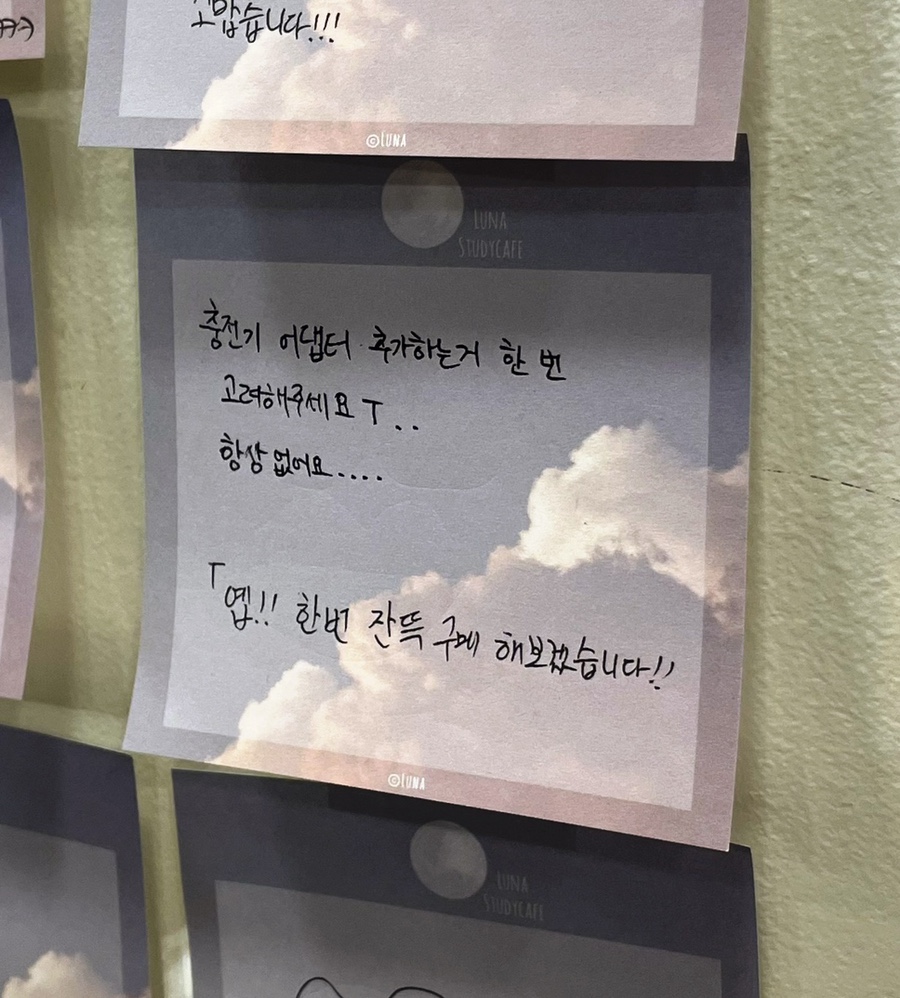 고맙습니다!!!
©LUNA
LUNA
STUDYCAFE
충전기 어댑터 추가하는거 한 번
고려해주세요ㅜ..
항상 없어요.....
「옙!! 한번 잔뜩 구매 해보겠습니다!!
©LUNA
LUNA
STUDYCAFE